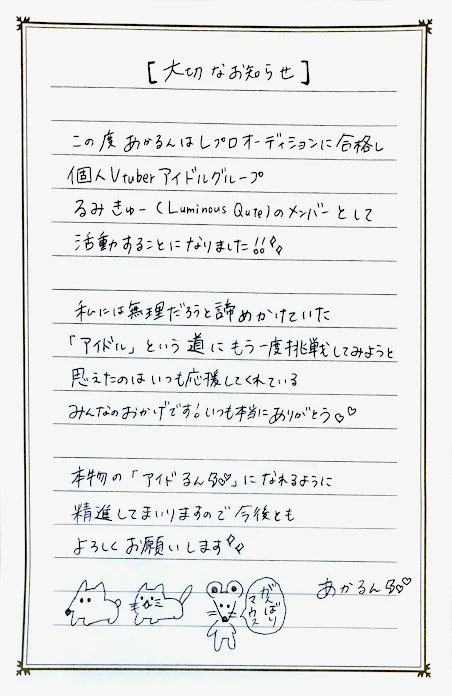 [大切なお知らせ]
この度 あかるんはLプロオーディションに合格し
個人Vtuberアイドルグループ
るみきゅー(Luminous Qute)のメンバーとして
活動することになりました!!
私には無理だろうと諦めかけていた
「アイドル」という道にもう一度挑戦してみようと
思えたのはいつも応援してくれている
みんなのおかげです!いつも本当にありがとう♡♡
本物の「アイドるん♡」になれるように
精進してまいりますので今後とも
よろしくお願いします
あかるん♡♡
がんばり
マウス